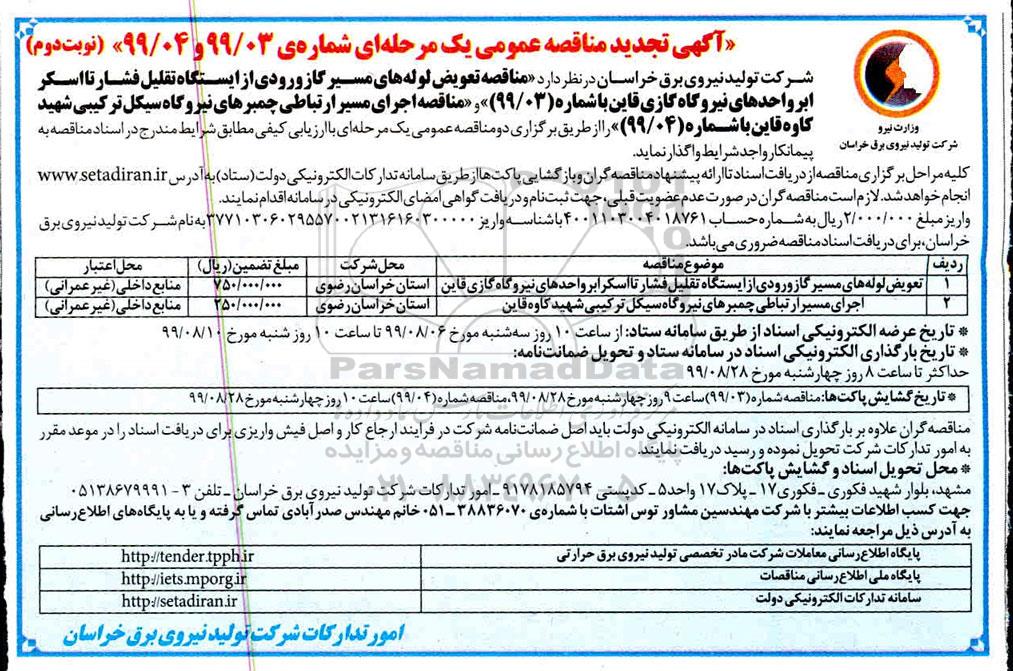 «آگهی تجدید مناقصه عمومی یک مرحله‌ای شماره‌ی ۹۹/۰۳ و ۹۹/۰۴» (نوبت دوم)
وزارت نیرو
شرکت تولید نیروی برق خراسان
شرکت تولید نیروی برق خراسان در نظر دارد «مناقصه تعویض لوله‌های مسیر گاز ورودی از ایستگاه تقلیل فشار تا اسکر
ابر واحدهای نیروگاه گازی قاین با شماره (۹۹/۰۳)» و «مناقصه اجرای مسیر ارتباطی چمبرهای نیروگاه سیکل ترکیبی شهید
کاوه قاین با شماره (۹۹/۰۴)» را از طریق برگزاری دو مناقصه عمومی یک مرحله‌ای با ارزیابی کیفی مطابق شرایط مندرج در اسناد مناقصه به
پیمانکار واجد شرایط واگذار نماید.
کلیه مراحل برگزاری مناقصه از دریافت اسناد تا ارائه پیشنهاد مناقصه گران و بازگشایی پاکت‌ها از طریق سامانه تدارکات الکترونیکی دولت (ستاد) به آدرس www.setadiran.ir
انجام خواهد شد. لازم است مناقصه گران در صورت عدم عضویت قبلی، جهت ثبت نام و دریافت گواهی امضای الکترونیکی در سامانه اقدام نمایند.
واریز مبلغ ۲/۰۰۰/۰۰۰ ریال به شماره حساب ۴۰۰۱۱۰۳۰۰۴۰۱۸۷۶۱ با شناسه واریز ۳۷۷۱۰۳۰۶۰۲۹۵۵۷۰۰۲۱۳۱۶۱۶۰۳۰۰۰۰۰ به نام شرکت تولید نیروی برق
خراسان، برای دریافت اسناد مناقصه ضروری می‌باشد.
ردیف موضوع مناقصه محل شرکت مبلغ تضمین (ریال) محل اعتبار
۱ تعویض لوله‌های مسیر گاز ورودی از ایستگاه تقلیل فشار تا اسکرابر واحدهای نیروگاه گازی قاین استان خراسان رضوی ۷۵۰/۰۰۰/۰۰۰ منابع داخلی (غیر عمرانی)
۲ اجرای مسیر ارتباطی چمبرهای نیروگاه سیکل ترکیبی شهید کاوه قاین استان خراسان رضوی ۲۵۰/۰۰۰/۰۰۰ منابع داخلی (غیر عمرانی)
* تاریخ عرضه الکترونیکی اسناد از طریق سامانه ستاد: از ساعت ۱۰ روز سه‌شنبه مورخ ۹۹/۰۸/۰۶ تا ساعت ۱۰ روز شنبه مورخ ۹۹/۰۸/۱۰
* تاریخ بارگذاری الکترونیکی اسناد در سامانه ستاد و تحویل ضمانت‌نامه:
حداکثر تا ساعت ۸ روز چهارشنبه مورخ ۹۹/۰۸/۲۸
* تاریخ گشایش پاکت‌ها: مناقصه شماره (۹۹/۰۳) ساعت ۹ روز چهارشنبه مورخ ۹۹/۰۸/۲۸، مناقصه شماره (۹۹/۰۴) ساعت ۱۰ روز چهارشنبه مورخ ۹۹/۰۸/۲۸
مناقصه گران علاوه بر بارگذاری اسناد در سامانه الکترونیکی دولت باید اصل ضمانت‌نامه شرکت در فرآیند ارجاع کار و اصل فیش واریزی برای دریافت اسناد را در موعد مقرر
به امور تدارکات شرکت تحویل نموده و رسید دریافت نمایند.
* محل تحویل اسناد و گشایش پاکت‌ها:
مشهد، بلوار شهید فکوری ـ فکوری ۱۷ ـ پلاک ۱۷ واحد ۵ ـ کدپستی ۹۱۷۸۱۸۵۷۹۴ ـ امور تدارکات شرکت تولید نیروی برق خراسان ـ تلفن ۳ - ۰۵۱۳۸۶۷۹۹۹۱
جهت کسب اطلاعات بیشتر با شرکت مهندسین مشاور توس اشتات با شماره‌ی ۳۸۸۳۶۰۷۰ ـ ۰۵۱ خانم مهندس صدرآبادی تماس گرفته و یا به پایگاه‌های اطلاع رسانی
به آدرس ذیل مراجعه نمایند:
پایگاه اطلاع رسانی معاملات شرکت مادر تخصصی تولید نیروی برق حرارتی http://tender.tpph.ir
پایگاه ملی اطلاع رسانی مناقصات http://iets.mporg.ir
سامانه تدارکات الکترونیکی دولت http://setadiran.ir
امور تدارکات شرکت تولید نیروی برق خراسان
ParsNamadData
پایگاه اطلاع رسانی مناقصه و مزایده